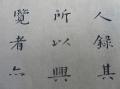 人錄其
所以興
覽者亦